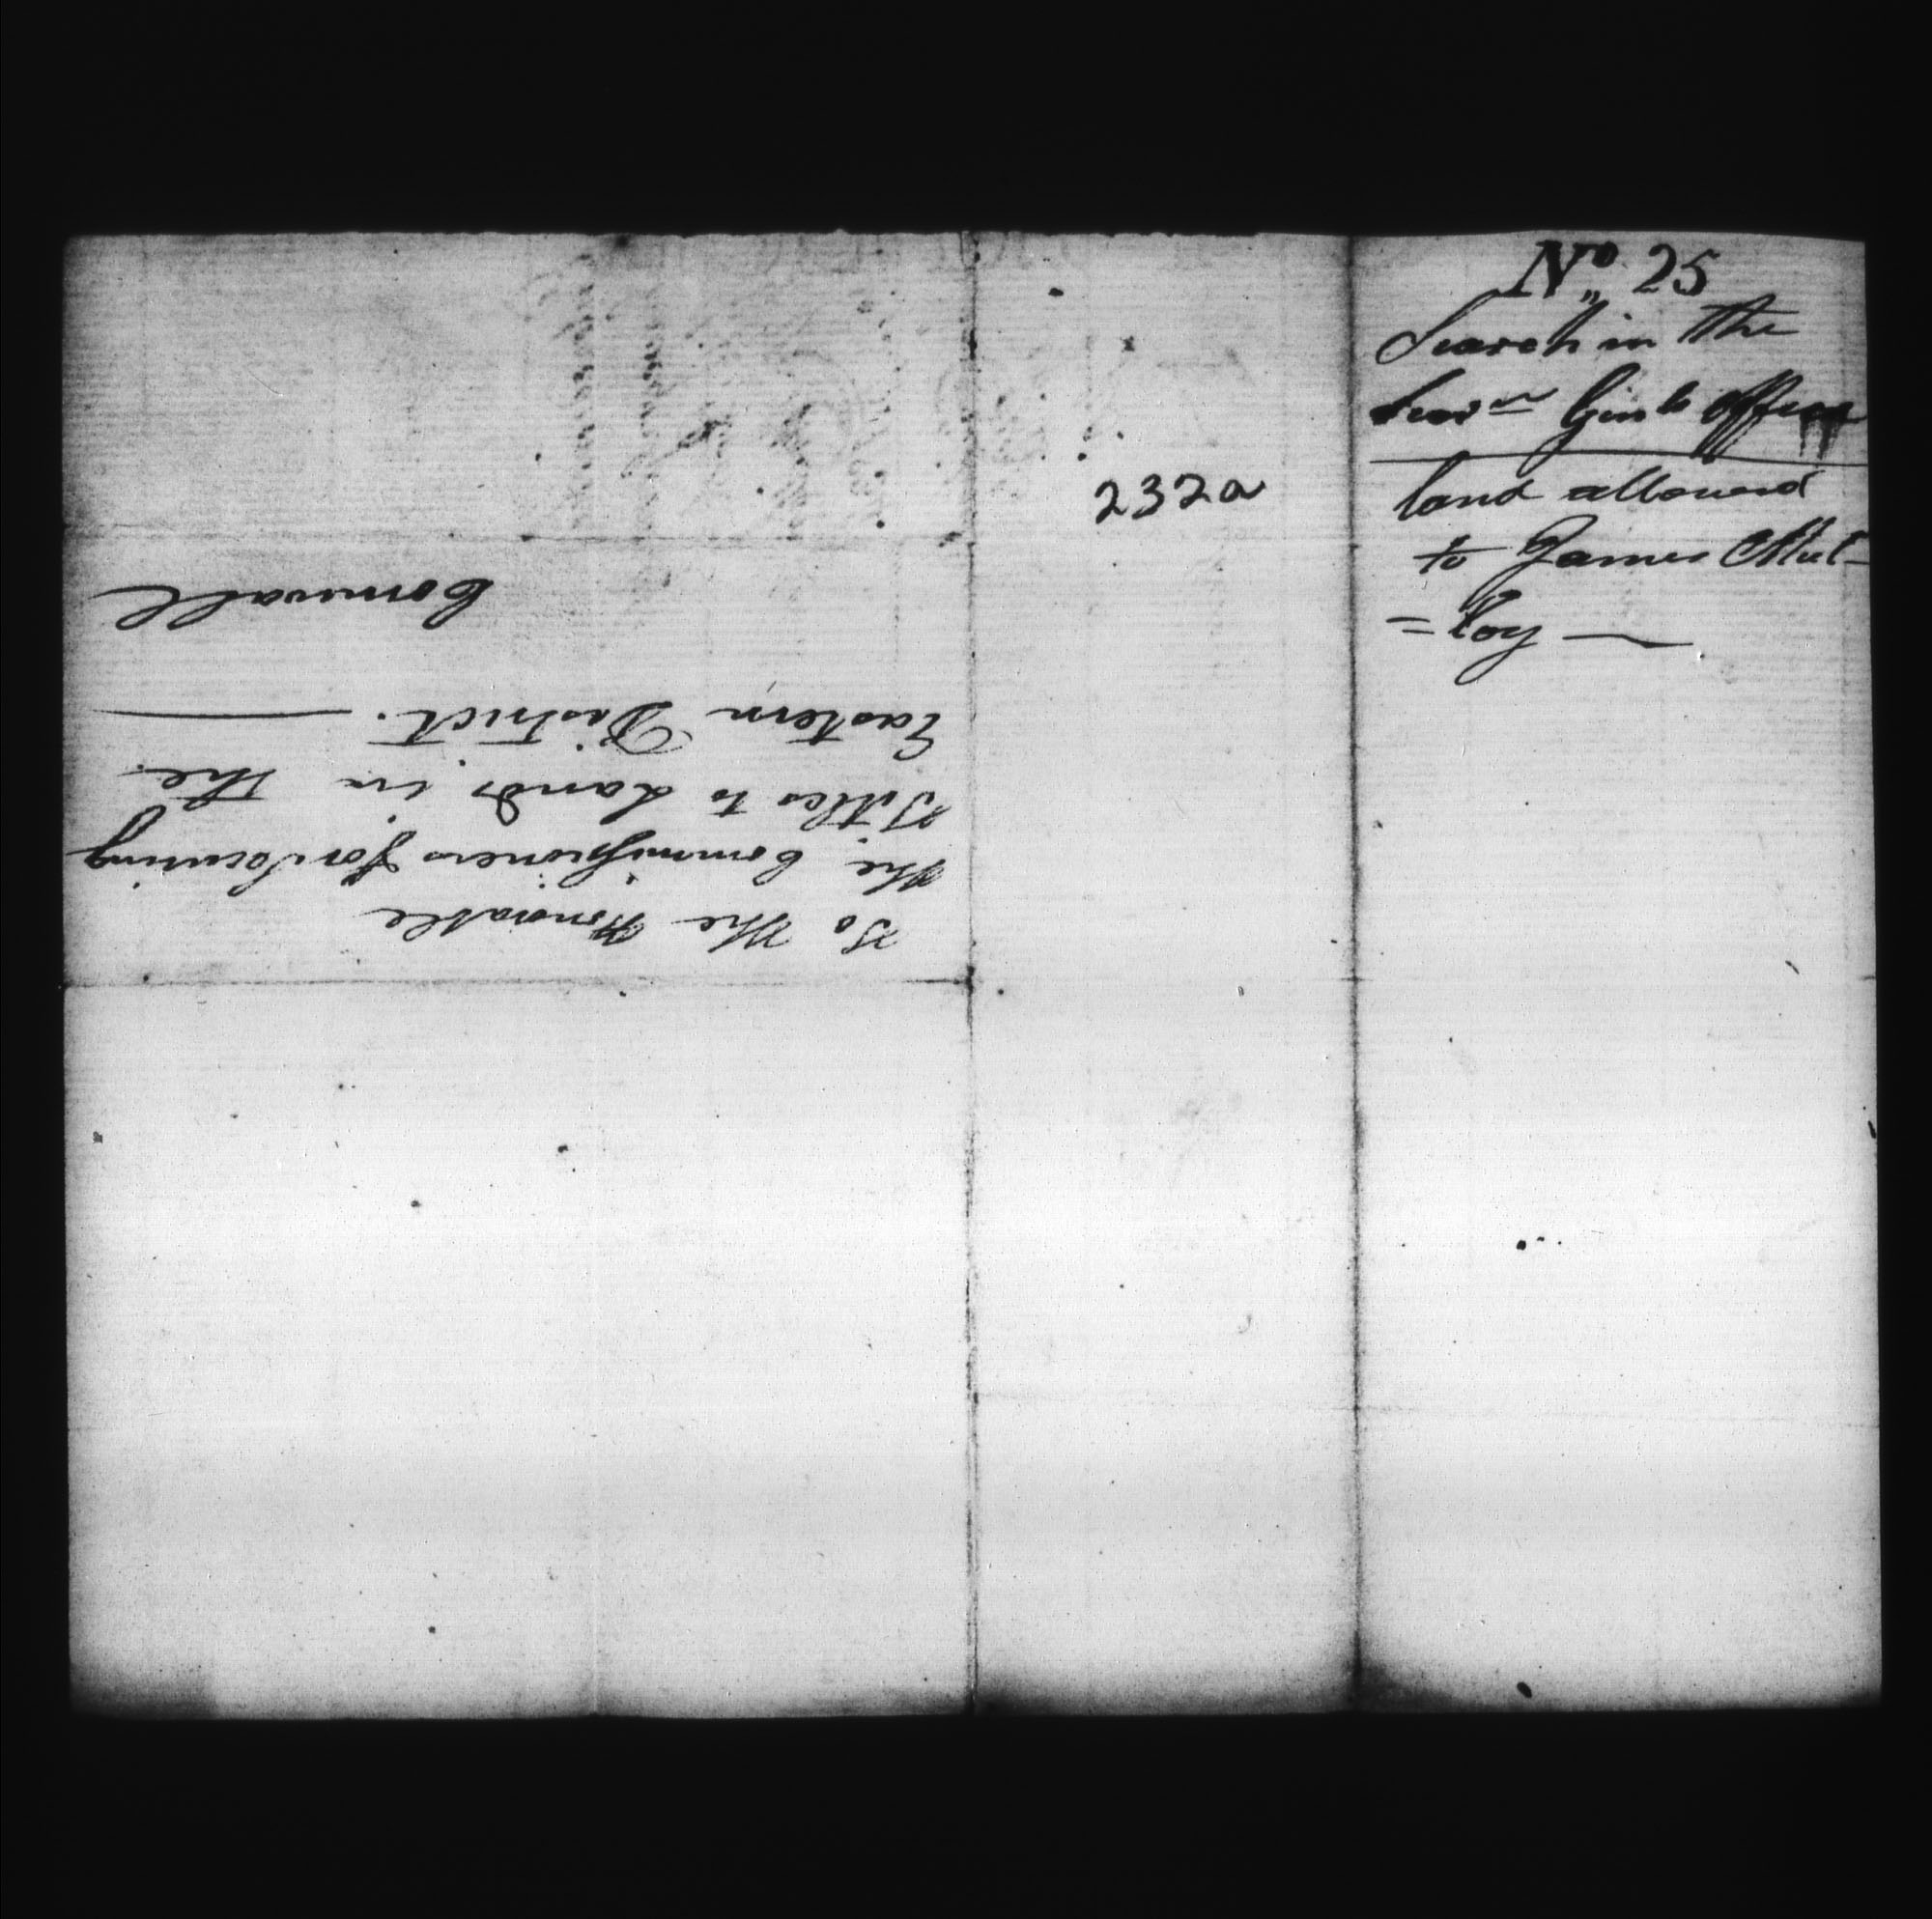 To the Honorable
the Commissioners for Securing
Titles to Lands in the
Eastern District.
Cornwall
232a
No. 25
Search in the
Genls office
land allowed
to James Mul-
=loy